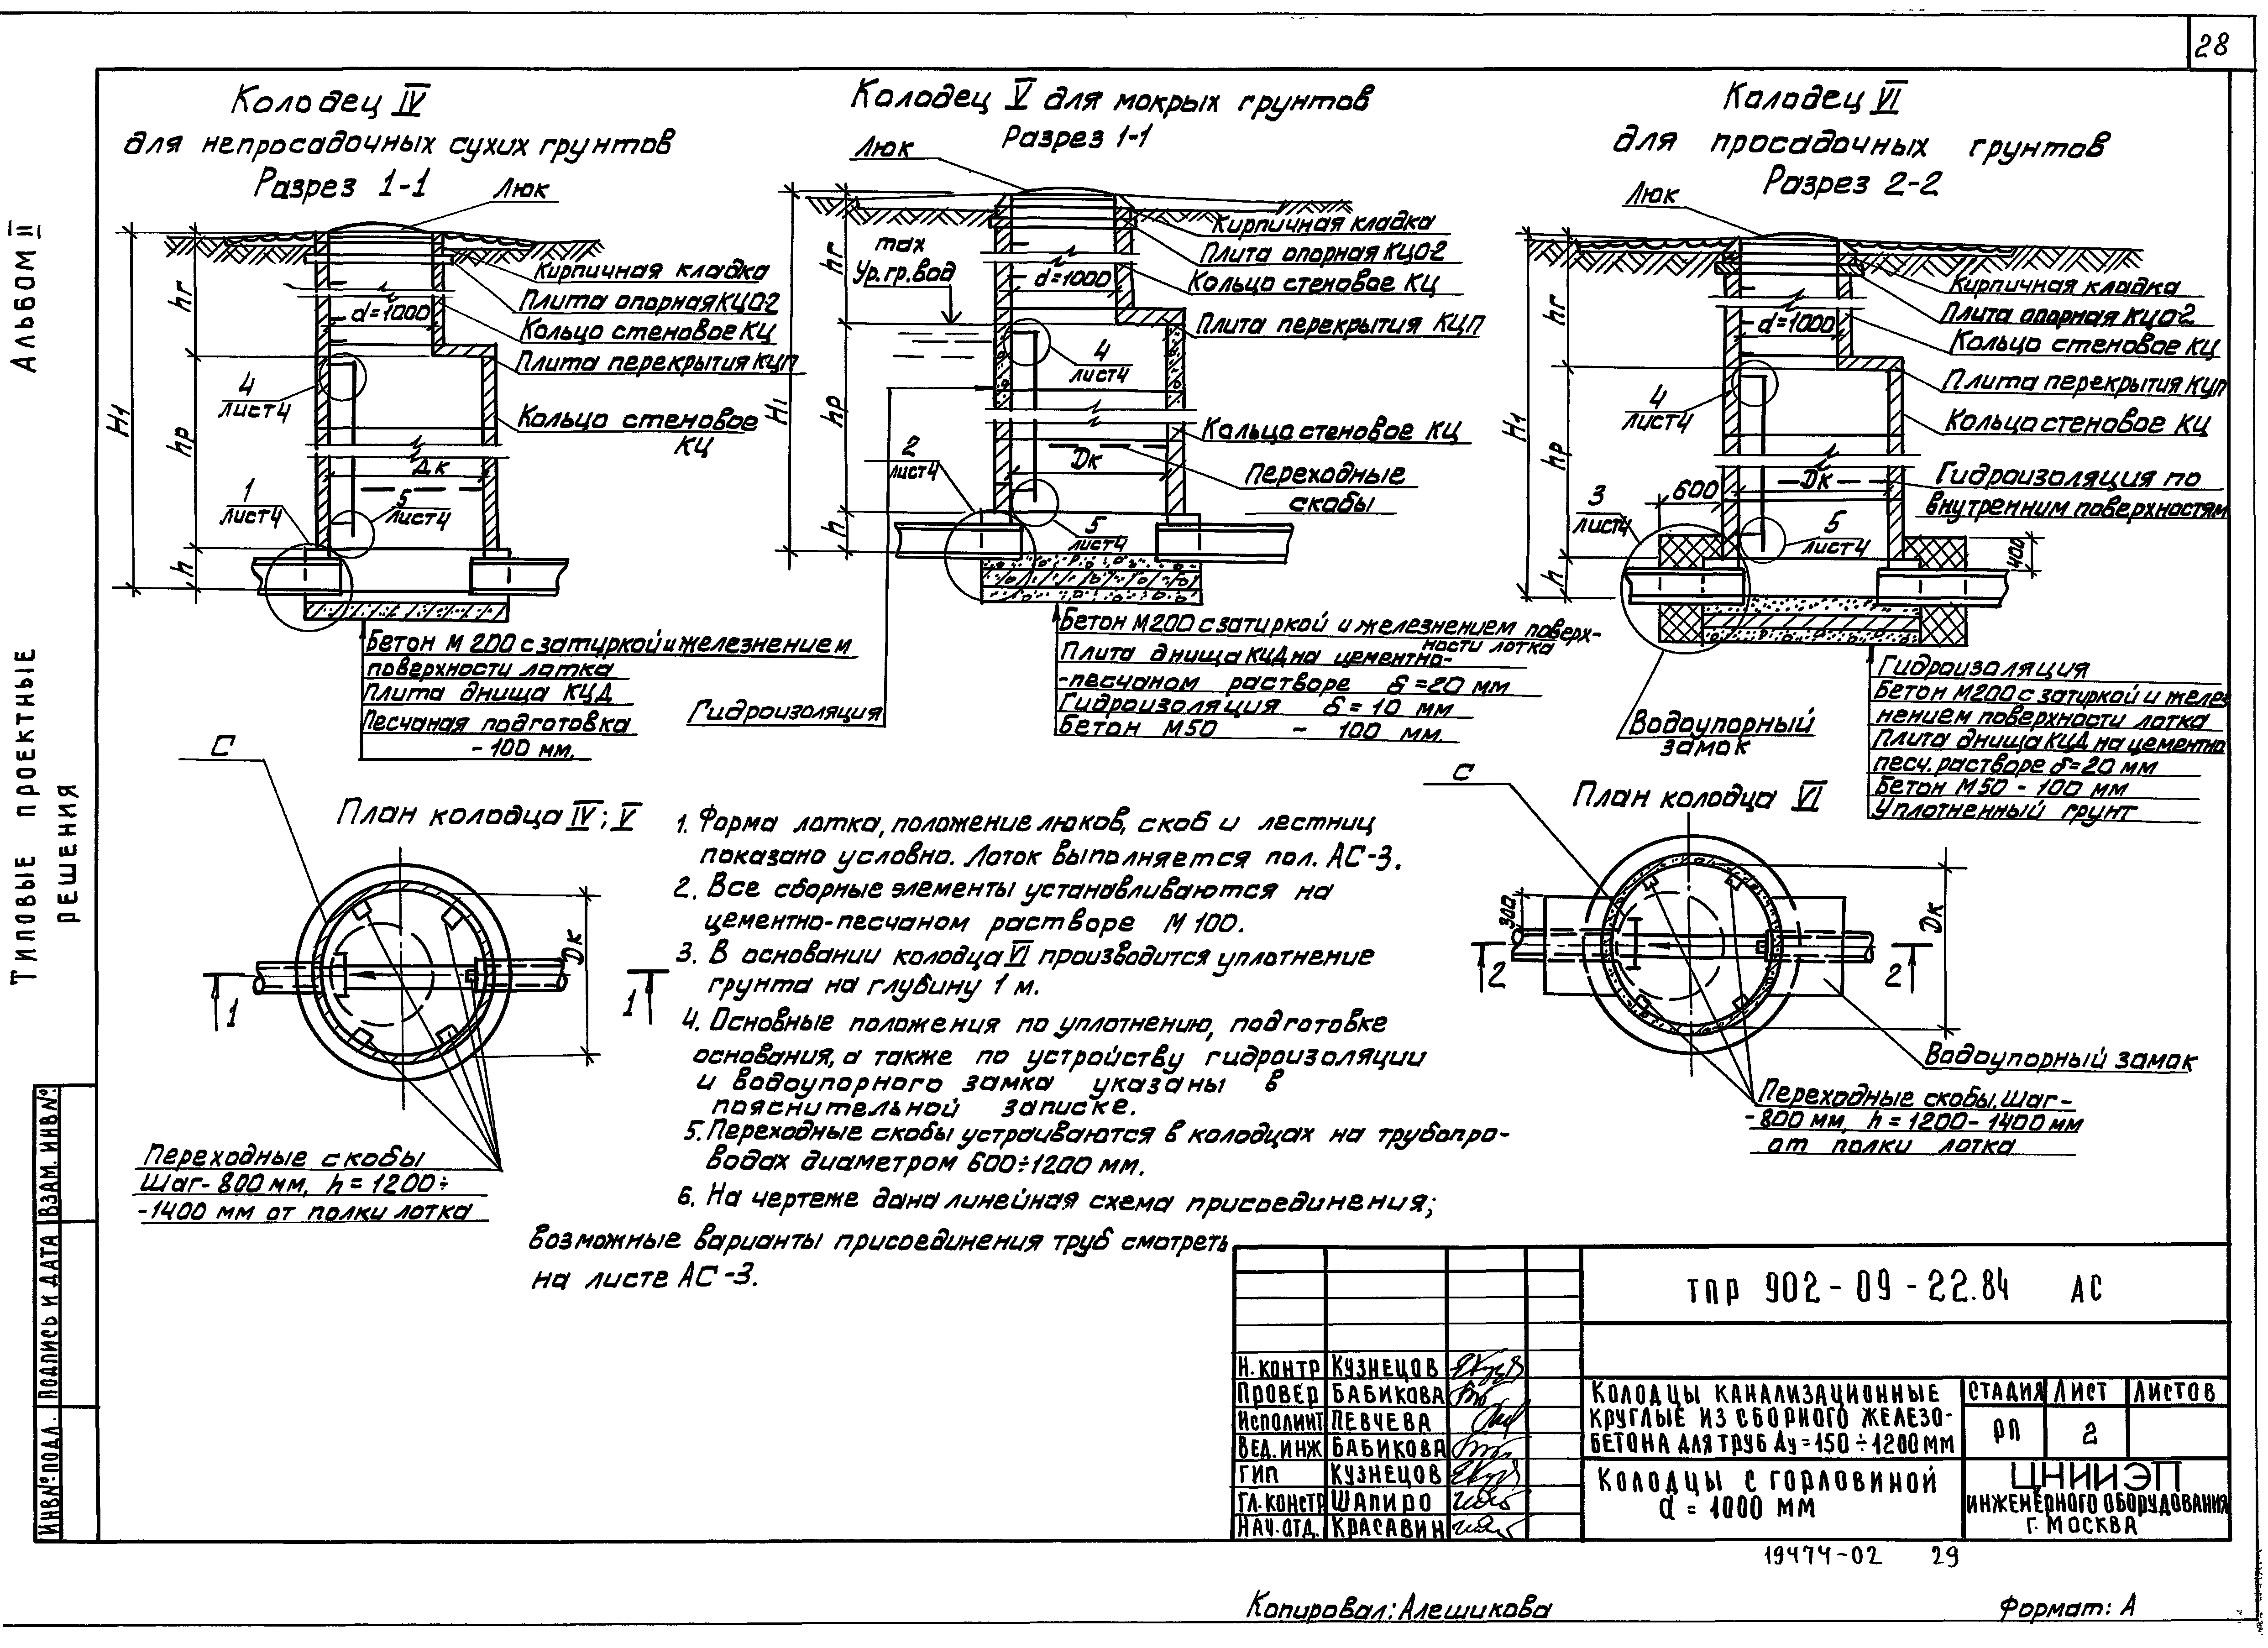 28
Альбом II
Типовые проектные
решения
Колодец IV
для непросадочных сухих грунтов
Разрез 1-1
Люк
Кирпичная кладка
Плита опорная КЦО-2
Кольцо стеновое КЦ
Плита перекрытия КЦП
Кольцо стеновое
КЦ
d=1000
Дк
H1
hг
hр
h
4
лист4
1
лист4
5
лист4
Бетон М200 с затиркой и железнением
поверхности лотка
Плита днища КЦД
Песчаная подготовка
- 100 мм.
Колодец V для мокрых грунтов
Разрез 1-1
Люк
max
Ур.гр.вод
Кирпичная кладка
Плита опорная КЦО-2
Кольцо стеновое КЦ
Плита перекрытия КЦП
Кольцо стеновое КЦ
Переходные
скобы
d=1000
Dк
H1
hг
hр
h
4
лист4
2
лист4
5
лист4
Гидроизоляция
Бетон М200 с затиркой и железнением поверх-
ности лотка
Плита днища КЦД на цементно-
-песчаном растворе δ=20 мм
Гидроизоляция δ=10 мм
Бетон М50 - 100 мм.
Колодец VI
для просадочных грунтов
Разрез 2-2
Люк
Кирпичная кладка
Плита опорная КЦО-2
Кольцо стеновое КЦ
Плита перекрытия КЦП
Кольцо стеновое КЦ
Гидроизоляция по
внутренним поверхностям
d=1000
Dк
H1
hг
hр
h
600
400
4
лист4
3
лист4
5
лист4
Водоупорный
замок
Гидроизоляция
Бетон М200 с затиркой и желез-
нением поверхности лотка
Плита днища КЦД на цементно
песч. растворе δ=20 мм
Бетон М50 - 100 мм
Уплотненный грунт
План колодца IV; V
С
Dк
1
1
Переходные скобы
Шаг-800мм, h=1200÷
-1400 мм от полки лотка
1. Форма лотка, положение люков, скоб и лестниц
показано условно. Лоток выполняется пол. АС-3.
2. Все сборные элементы устанавливаются на
цементно-песчаном растворе М 100.
3. В основании колодца VI производится уплотнение
грунта на глубину 1 м.
4. Основные положения по уплотнению, подготовке
основания, а также по устройству гидроизоляции
и водоупорного замка указаны в
пояснительной записке.
5. Переходные скобы устраиваются в колодцах на трубопро-
водах диаметром 600÷1200 мм.
6. На чертеже дана линейная схема присоединения;
возможные варианты присоединения труб смотреть
на листе АС-3.
План колодца VI
С
300
Dк
2
2
Водоупорный замок
Переходные скобы. Шаг-
-800мм, h=1200-1400мм
от полки лотка
ТПР 902-09-22.84 АС
Н.контр Кузнецов
Провер Бабикова
Исполинт Певчева
Вед.инж Бабикова
ГИП Кузнецов
Гл.констр Шапиро
Нач.отд. Красавин
Колодцы канализационные
круглые из сборного железо-
бетона для труб Ду=150÷1200мм
Стадия Лист Листов
РП 2
Колодцы с горловиной
d = 1000 мм
ЦНИИЭП
инженерного оборудования
г. Москва
Инв№подл. Подпись и дата Взам. инв№
19474-02 29
Копировал: Алешикова
Формат: А